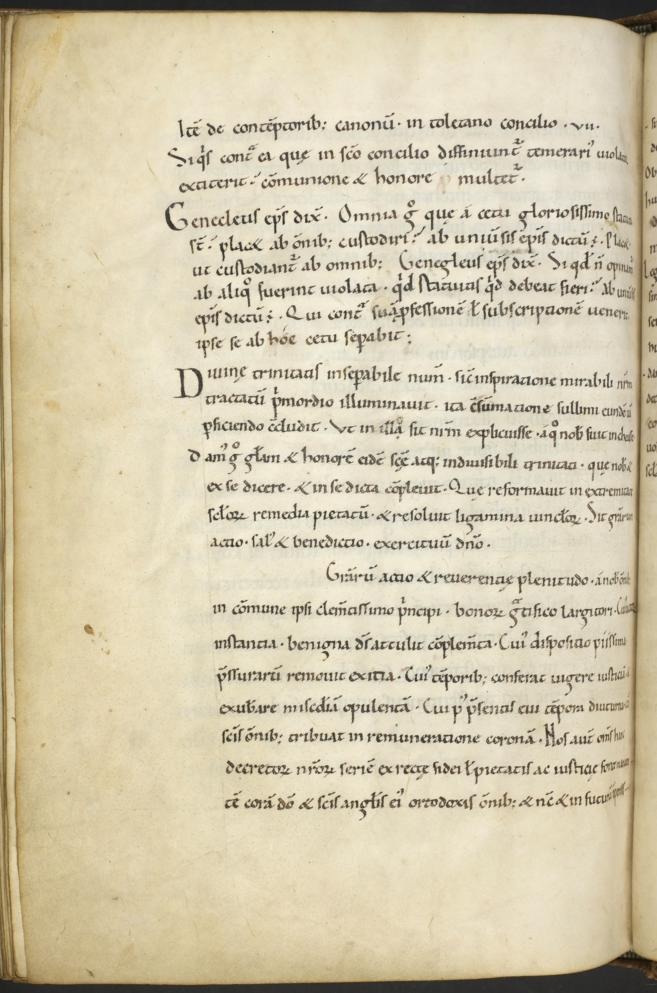 Itē de contēptorib: canonū · in toletano concilio · vii ·
Si q̄s cont̄ ea quę in sc̄o concilio diffiniunt̄ temerari᾽
extiterit · cōmunione & honore multet̄ ·
Genecleus ep̄s dix̄ · Omnia g̊ que á cetu gloriosissimo
st̄ · placet ab ōnib: custodiri · ab uniuīsis ep̄is dictū ē ·
ut custodiant̄ ab omnib: Genegleus ep̄s dix̄ · Si qd̄ n̄
ab aliq̊ fuerint uiolata · qd̄ statutis q̄d debeat fieri · Ab
ep̄is dictū ē · Qui cont̄ suā p̄fessionē ł subscriptionē
ipse se ab hóc cetu sepabit :
Diuinę trinitatis insepabile num̄ · sic̄ inspiratione mirabili nr̄m
tractatū p̄mordio illuminauit · ita c̄sūmatione sullimi
p̄ficiendo c̄cludit · Ut in illā sit nr̄m explicuisse · á q̊ nob̄ fuit
Dam᾽ g̊ głam & honorē eidē sc̄ę atq: indiuisibili trinitati · que nob̄
ex se dicere · & in se dicta cōpleuit · Quę reformauit in
scłoꝝ remedia pietatū · & resoluit ligamina uincłoꝝ · Sit
actio · sał & benedictio · exercituū dn̄o ·
Grār̄ū actio & reuerentię plenitudo · á nob̄
in cōmune ipsi clem̄tissimo p̄ncipi · bonoꝝ g̊tifico largitori ·
instantia · benigna ds̄ attulit cōplem̄ta · Cui᾽ dispositio piissima
p̄ssurarū remouit exitia · Cui᾽ tēporib: conferat uigere
exubare mis̄cdiā opulentā · Cui p᾽ p̄sentis eui tēpora
sc̄is ōnib: tribuat in remuneratione coronā · Nos aut̄
decretoꝝ nr̄oꝝ seriē ex rectę fidei ł pietatis ac iusticię
tē corā dō & sc̄is angłis ei᾽ ortodoxis ōnib: & nc̄ & in